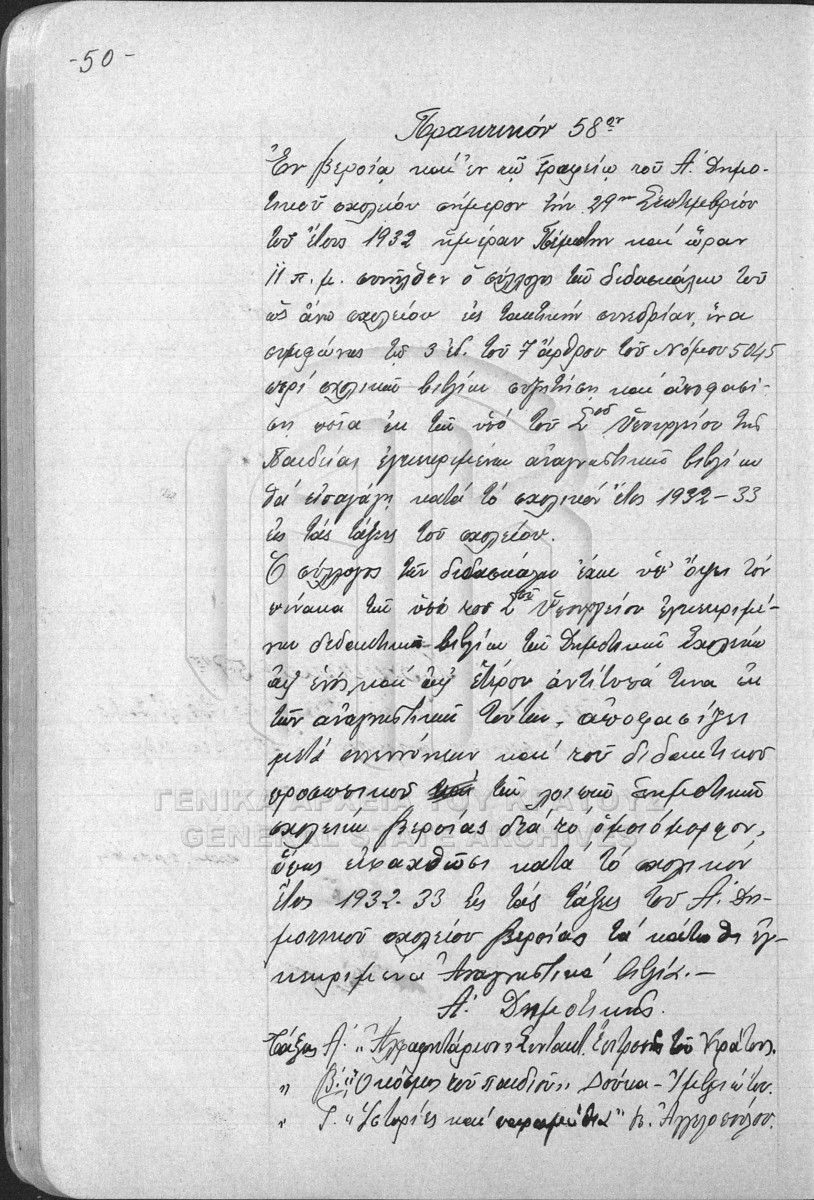 -50-
Πρακτικόν 58ον
Ἐν Βεροίᾳ καί ἐν τῷ Γραφείῳ τοῦ Α΄. Δημο-
τικοῦ σχολείου σήμερον τήν 29ην Σεπτεμβρίου
τοῦ ἔτους 1932 ἡμέραν Πέμπτην καί ὥραν
11 π.μ. συνῆλθεν ὁ σύλλογος τῶν διδασκάλων τοῦ
ὡς ἄνω σχολείου εἰς τακτικήν συνεδρίαν, ἵνα
συμφώνως τῷ 3 ἐδ. τοῦ 7 ἄρθρου τοῦ Νόμου 5045
περί σχολικῶν βιβλίων συζητήσῃ καί ἀποφασί-
σῃ ποῖα ἐκ τῶν ὑπό τοῦ Σοῦ Ὑπουργείου τῆς
Παιδείας ἐγκεκριμένων ἀναγνωστικῶν βιβλίων
θά εἰσαγάγῃ κατά τό σχολικόν ἔτος 1932-33
εἰς τάς τάξεις τοῦ σχολείου.
Ὁ σύλλογος τῶν διδασκάλων ἔχων ὑπ' ὄψει τόν
πίνακα τῶν ὑπό τοῦ Σοῦ Ὑπουργείου ἐγκεκριμέ-
νων διδακτικῶν βιβλίων τῶν Δημοτικῶν Σχολείων
ἀφ' ἑνός καί ἀφ' ἑτέρου ἀντίτυπά τινα ἐκ
τῶν ἀναγνωστικῶν τούτων, ἀποφασίζει
μετά συνεννόησιν καί τοῦ διδακτικοῦ
προσωπικοῦ τῶν λοιπῶν Δημοτικῶν
σχολείων Βεροίας διά τό ὁμοιόμορφον,
ὅπως εἰσαχθῶσι κατά τό σχολικόν
ἔτος 1932-33 εἰς τάς τάξεις τοῦ Α΄. Δη-
μοτικοῦ σχολείου Βεροίας τά κάτωθι ἐγ-
κεκριμένα Ἀναγνωστικά βιβλία.-
Α΄. Δημοτικῆς.
Τάξις Α΄. "Ἀλφαβητάριον" Συντακτ. Ἐπιτροπῆς τοῦ Κράτους.
" Β΄. "Ὁ κόσμος τοῦ παιδιοῦ" Δούκα -
" Γ. "Ἱστορίες καί παραμύθια" Ἀγγελοπούλου.
ΓΕΝΙΚΑ ΑΡΧΕΙΑ ΤΟΥ ΚΡΑΤΟΥΣ
GENERAL STATE ARCHIVES